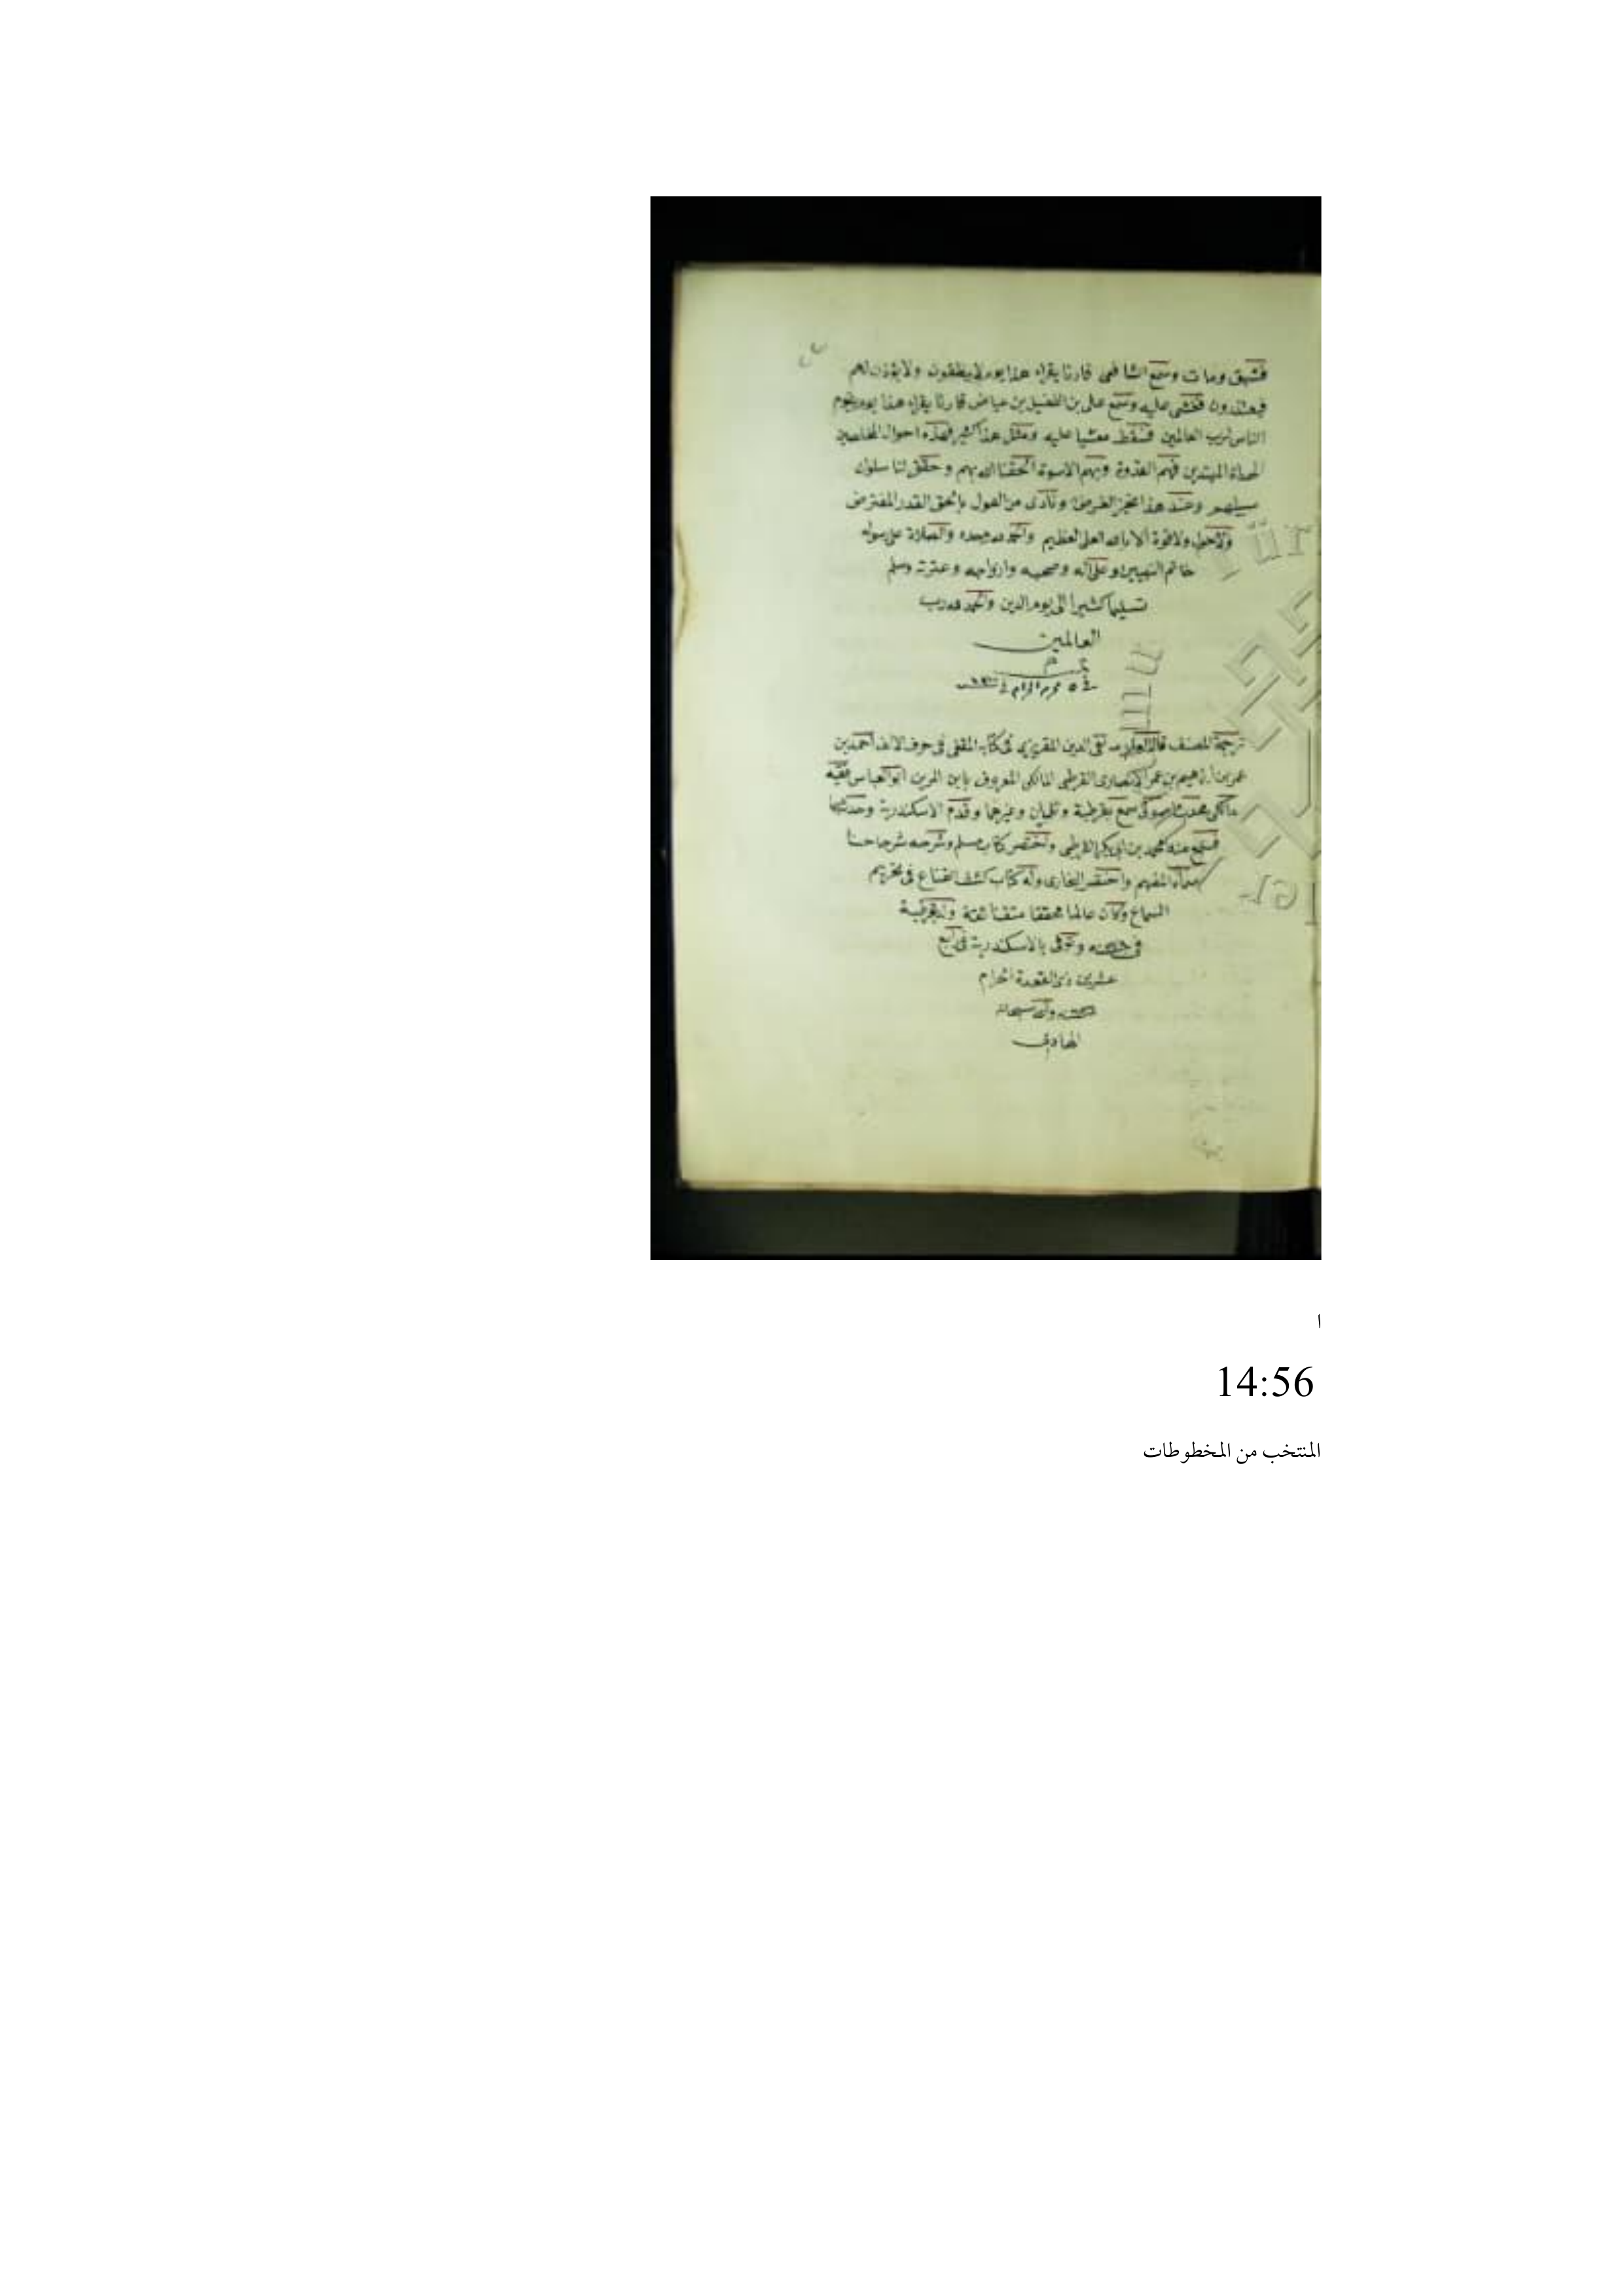 فشهق ومات وسمع الشافعى قارئا يقراء هذا يوم لا ينطقون ولا يؤذن لهم
فيعتذرون فغشى عليه وسمع على بن الفضيل بن عياض قارئا يقراء هذا يوم يقوم
الناس لرب العالمين فسقط مغشيا عليه ومثل هذا كثير فهذه احوال المخلصين
الهداة المهتدين فبهم القدوة وبهم الاسوة الحقنا الله بهم وحقق لنا سلوك
سبيلهم وعند هذا نجز الغرض وتأدى من القول بالحق القدر المفترض
ولاحول ولاقوة الا بالله العلى العظيم والحمد لله وحده والصلاة على رسوله
خاتم النبيين وعلى آله وصحبه وازواجه وعترته وسلم
تسليما كثيرا الى يوم الدين والحمد لله رب
العالمين
تم
فى ٥ محرم الحرام
ترجمة المصنف قال العلامه تقى الدين المقريزى فى كتابه المقفى فى حرف الالف احمد بن
عمر بن ابراهيم بن عمر الانصارى القرطبى المالكى المعروف بابن المزين ابو العباس فقيه
مالكى محدث سمع بقرطبة وتلمسان وغيرهما وقدم الاسكندرية وحدث بها
فسمع منه محمد بن ابى بكر القرطبى واختصر كتاب مسلم وشرحه شرحا حسنا
سماه المفهم واختصر البخارى وله كتاب كشف القناع فى تحريم
السماع وكان عالما محققا متقنا ثقة ولد بقرطبة
فى سنه وتوفى بالاسكندرية فى رابع
عشرين ذى القعدة الحرام
سنه والله سبحانه
الهادى
ا
14:56
المنتخب من المخطوطات